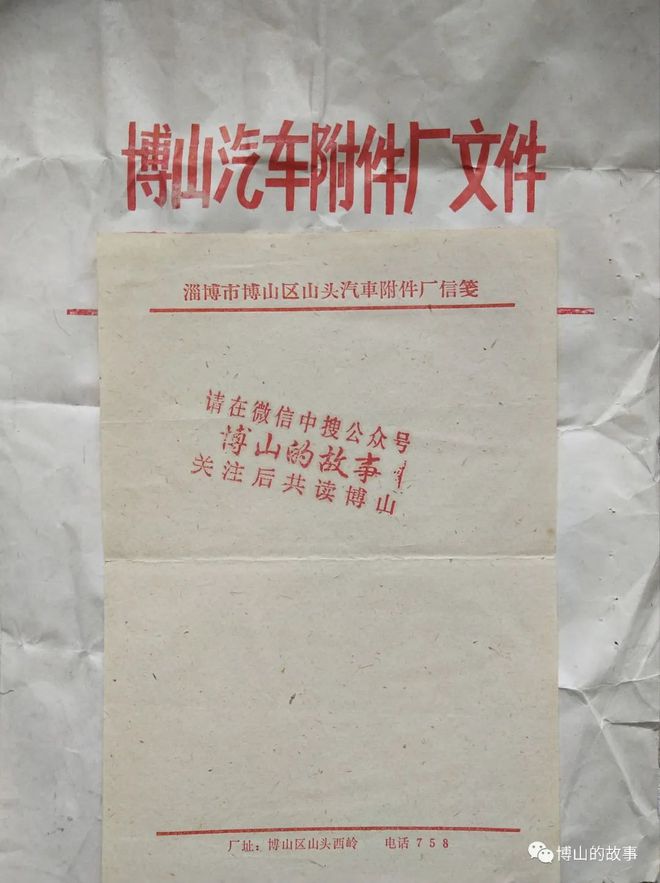 博山汽车附件厂文件
淄博市博山区山头汽車附件厂信笺
请在微信中搜公众号
博山的故事
关注后共读博山
厂址：博山区山头西岭 电话758
博山的故事